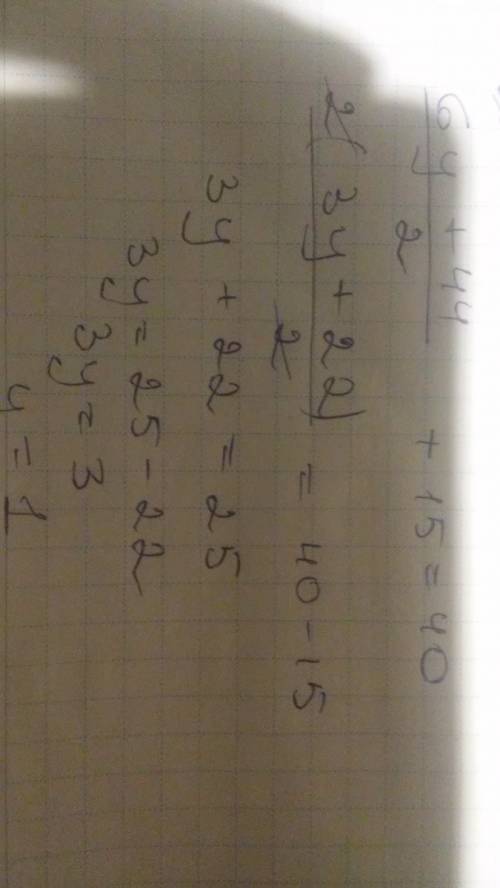 6y + 44 / 2 + 15 = 40
2(3y + 22) / 2 = 40 - 15
3y + 22 = 25
3y = 25 - 22
3y = 3
y = 1